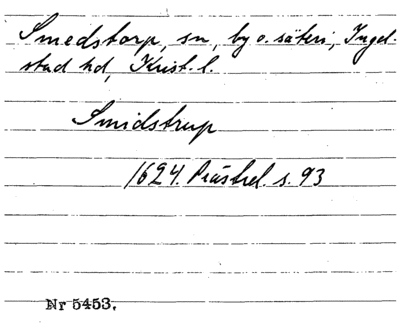 Smedstorp, sn, by o. säteri, Ingel-
stad hd, Krist. l.
Smidstrup
1624. Prästrel. s. 93
Nr 5453.